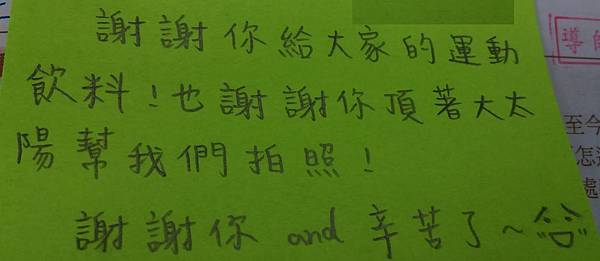 謝謝你給大家的運動
飲料！也謝謝你頂著大太
陽幫我們拍照！
謝謝你 and 辛苦了～
導師
至今
怎
處